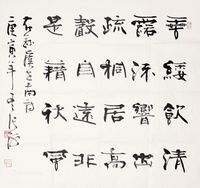 垂緌飲清
露流響出
疏桐居高
聲自遠非
是藉秋風
虞世南詩
庚寅